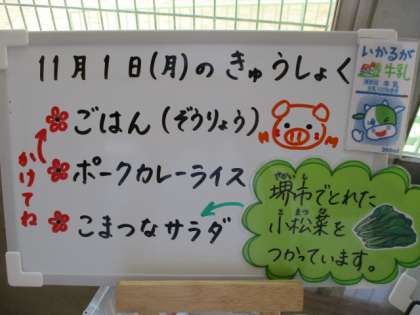 11月1日(月)のきゅうしょく
ごはん(ぞうりょう)
かけてね
ポークカレーライス
こまつなサラダ
堺市でとれた
小松菜を
つかっています。
いかるが
牛乳